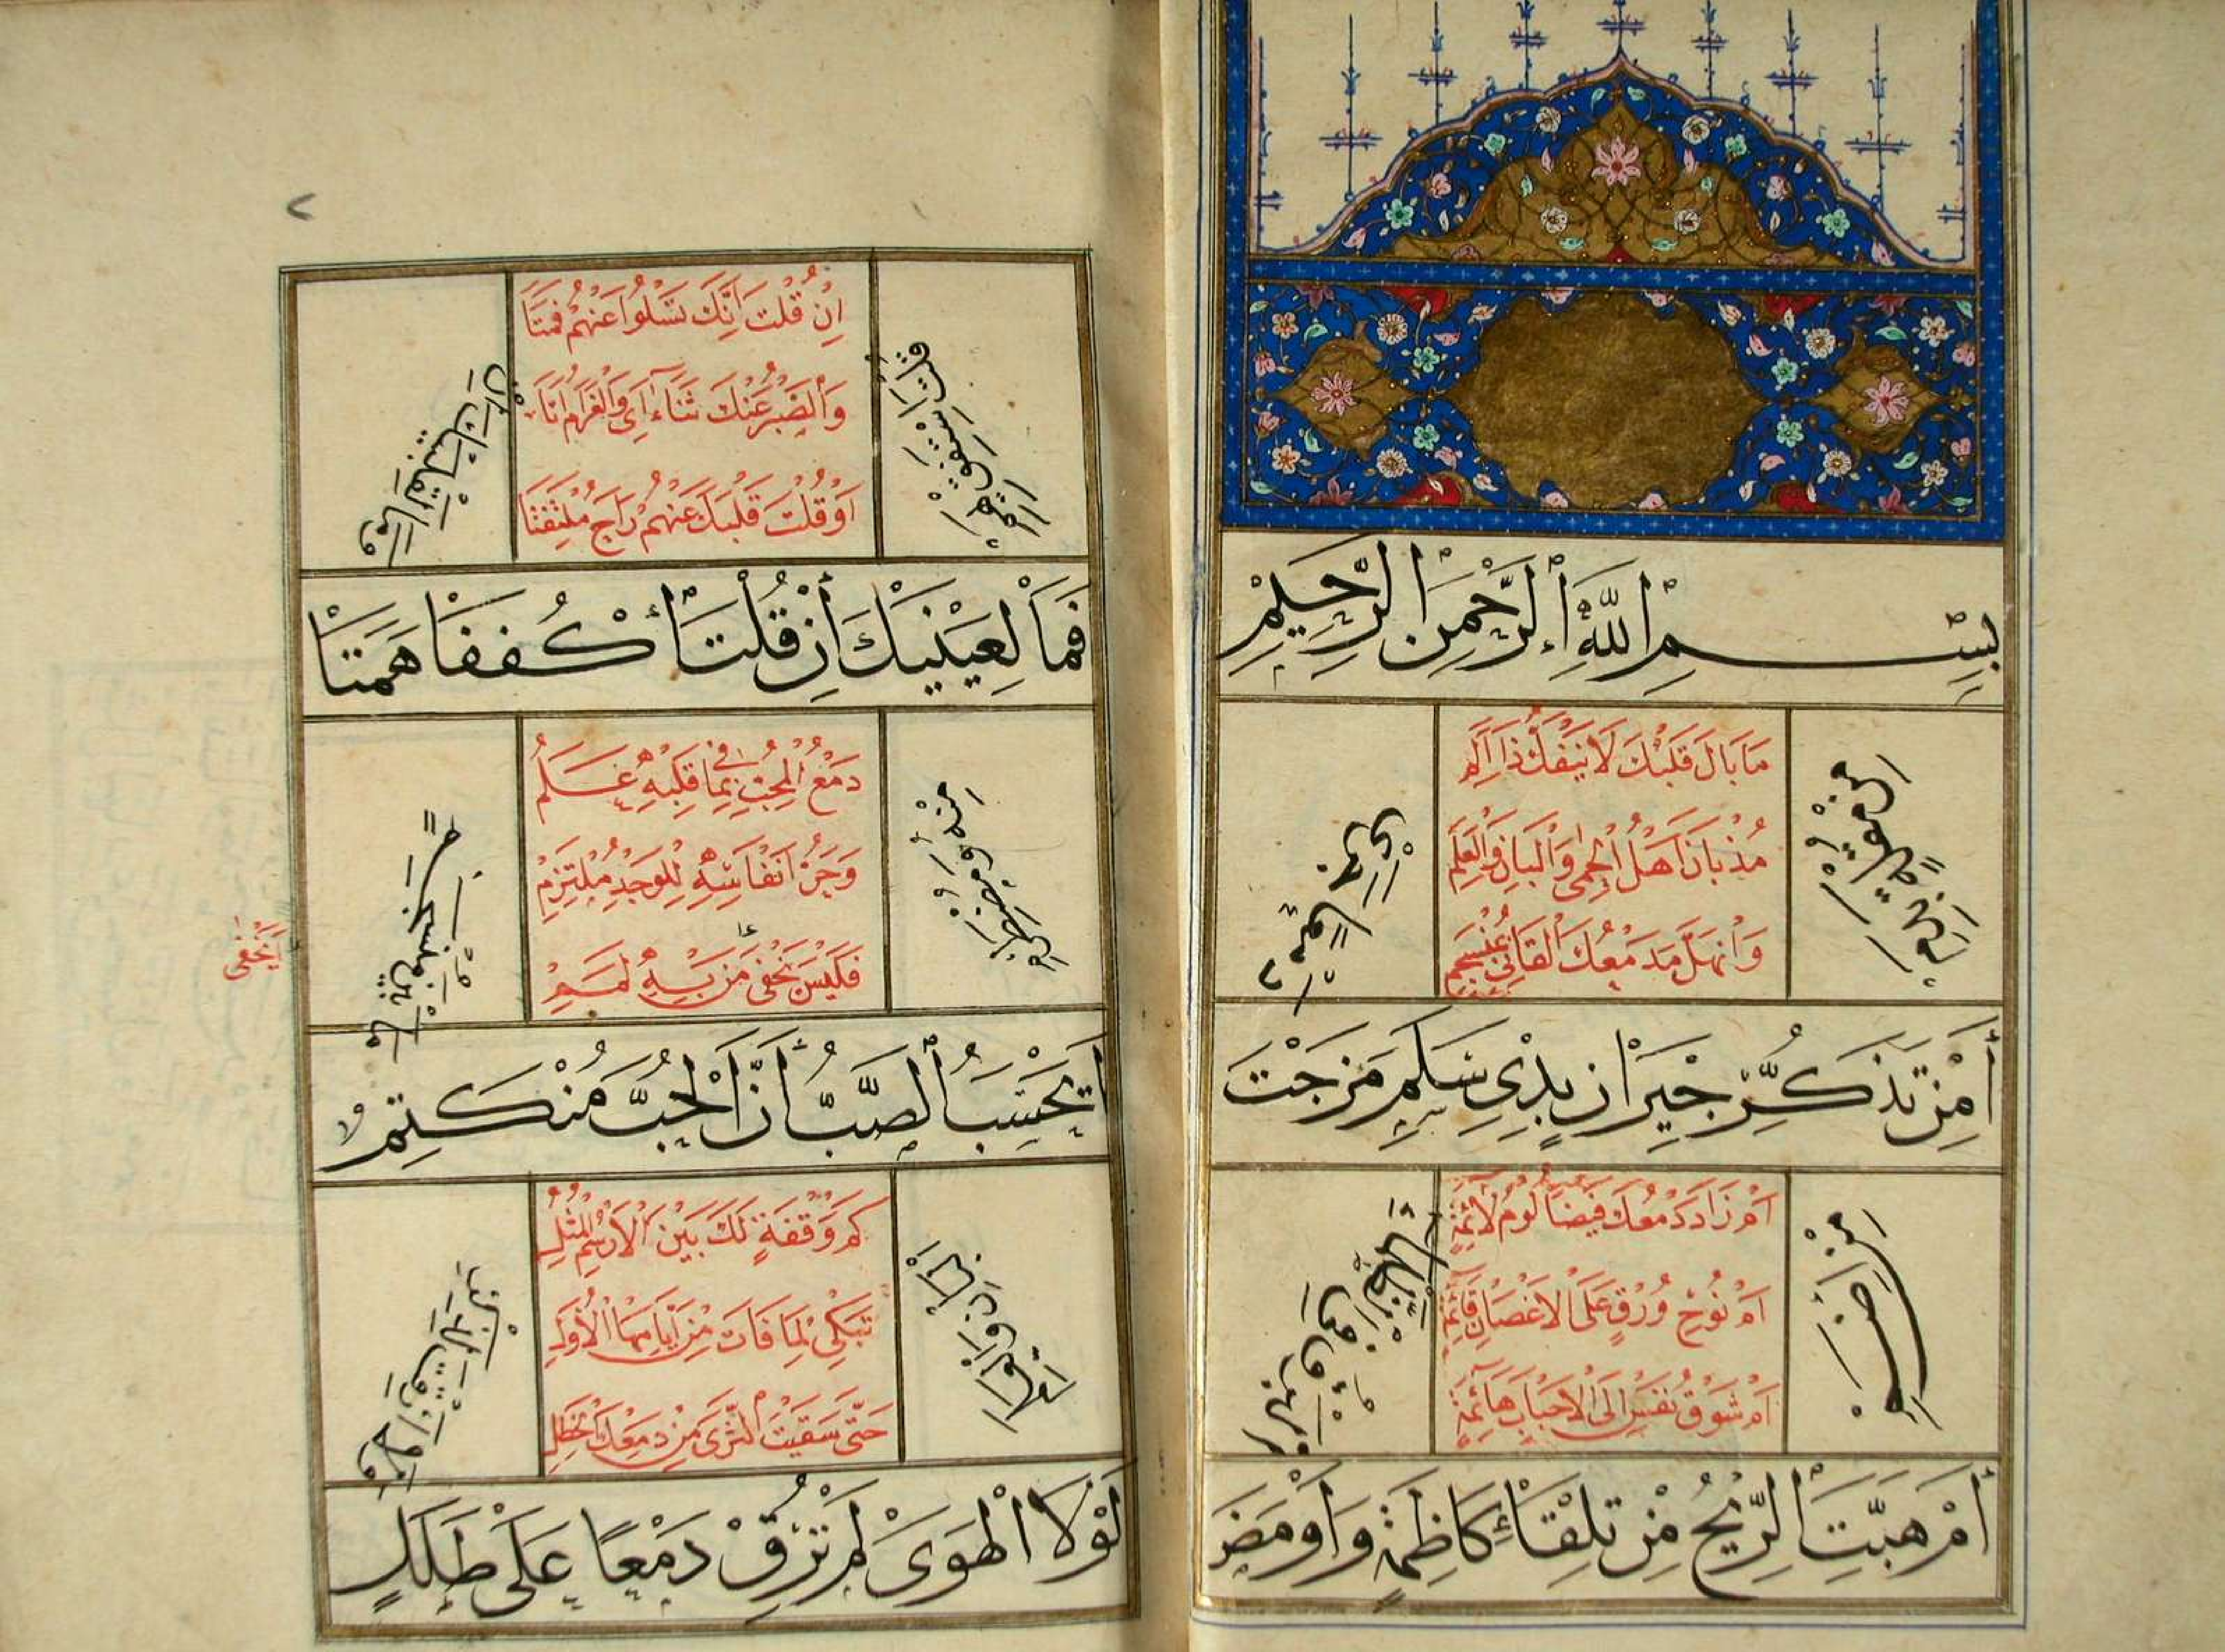 بِسْمِ اللَّهِ الرَّحْمَنِ الرَّحِيمِ
مَا بَالَ قَلْبُكَ لَا يَنْفَكُّ ذَا أَلَمِ
مُذْ بَانَ أَهْلُ الْحِمَى وَالْبَانِ وَالْعَلَمِ
وَانْهَلَّ مَدْمَعُكَ الْقَانِي بِمُنْسَجِمِ
أَمِنْ تَذَكُّرِ جِيْرَانٍ بِذِي سَلَمِ مَزَجْتَ
دَمْعًا جَرَى
مِنْ مُقْلَةٍ بِدَمِ
اَمْ زَادَ دَمْعُكَ فَيْضًا لَوْمُ لَائِمَةٍ
اَمْ نَوْحُ وُرْقٍ عَلَى الْاَغْصَانِ قَائِمَةٍ
اَمْ شَوْقُ نَفْسٍ اِلَى الْاَحْبَابِ هَائِمَةٍ
أَمْ هَبَّتِ الرِّيْحُ مِنْ تِلْقَاءِ كَاظِمَةٍ وَاَوْمَضَ
الْبَرْقُ فِي الظَّلْمَاءِ
مِنْ اِضَمِ
٢
اِنْ قُلْتَ اِنَّكَ تَسْلُوا عَنْهُمْ فَمَتَا
وَالصَّبْرُ عَنْكَ ثَنَاءَاى وَالْغَرَامُ اتَا
اَوْ قُلْتَ قَلْبَكَ عَنْهُمْ رَاجَ مُلْتَفِتَا
فَمَا لِعَيْنَيْكَ اِنْ قُلْتَ اكْفُفَا هَمَتَا
وَمَا لِقَلْبِكَ اِنْ
قُلْتَ اسْتَفِقْ يَهِمِ
دَمْعُ الْمُحِبِّ بِمَا فِي قَلْبِهِ عَلَمُ
وَحَرُّ اَنْفَاسِهِ لِلْوَجْدِ مُلْتَزِمُ
فَلَيْسَ يَخْفَى مَنْ بِهِ لَمَمُ
اَيَخْفَى
اَيَحْسَبُ الصَّبُّ اَنَّ الْحُبَّ مُنْكَتِمٌ
مَا بَيْنَ مُنْسَجِمٍ
مِنْهُ وَمُضْطَرِمِ
كَمْ وَقْفَةٍ لَكَ بَيْنَ الْاَرْسُمِ الْمُثُلِ
تَبْكِي لِمَا فَاتَ مِنْ اَيَّامِهَا الْاُوَلِ
حَتَّى سَقَيْتَ الثَّرَى مِنْ دَمْعِكَ الْخَطِلِ
لَوْلَا الْهَوَى لَمْ تُرِقْ دَمْعًا عَلَى طَلَلٍ
وَلَا اَرِقْتَ لِذِكْرِ
الْبَانِ وَالْعَلَمِ